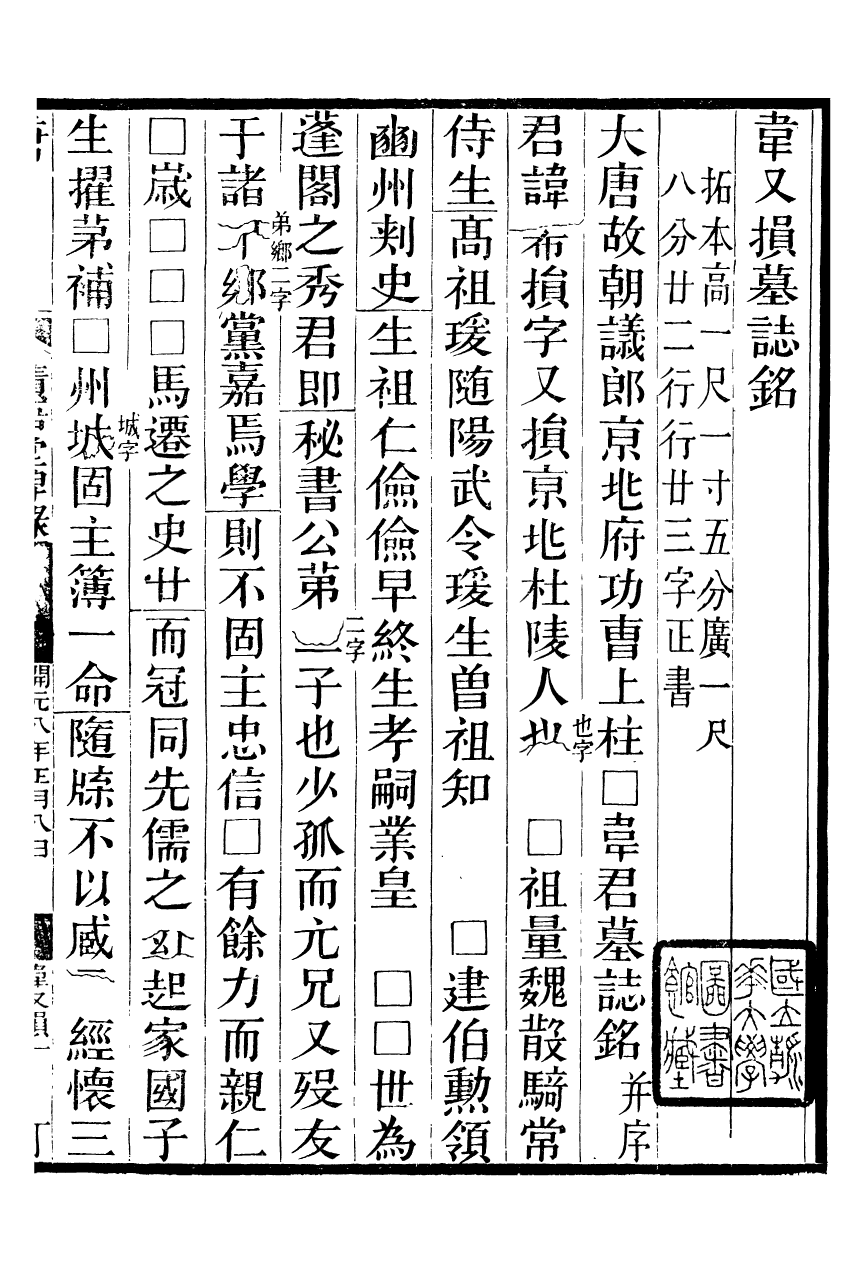 韋又損墓誌銘
拓本高一尺一寸五分廣一尺
八分廿二行行廿三字正書
大唐故朝議郎京兆府功曹上柱□韋君墓誌銘并序
君諱希損字又損京兆杜陵人也也字□祖量魏散騎常
侍生高祖瑗隨陽武令瑗生曽祖知□建伯勲領
豳州刾史生祖仁儉儉早終生考嗣業皇□□世為
蓬閣之秀君即秘書公苐二字子也少孤而元兄又歿友
于諸弟鄉二字鄉黨嘉焉學則不固主忠信□有餘力而親仁
□嵗□□□馬遷之史廿而冠同先儒之起家國子
生擢苐補□州城城字固主簿一命隨牒不以慼經懷三
開元八年正月八日
韋又損一
國立清華大學圖書館藏